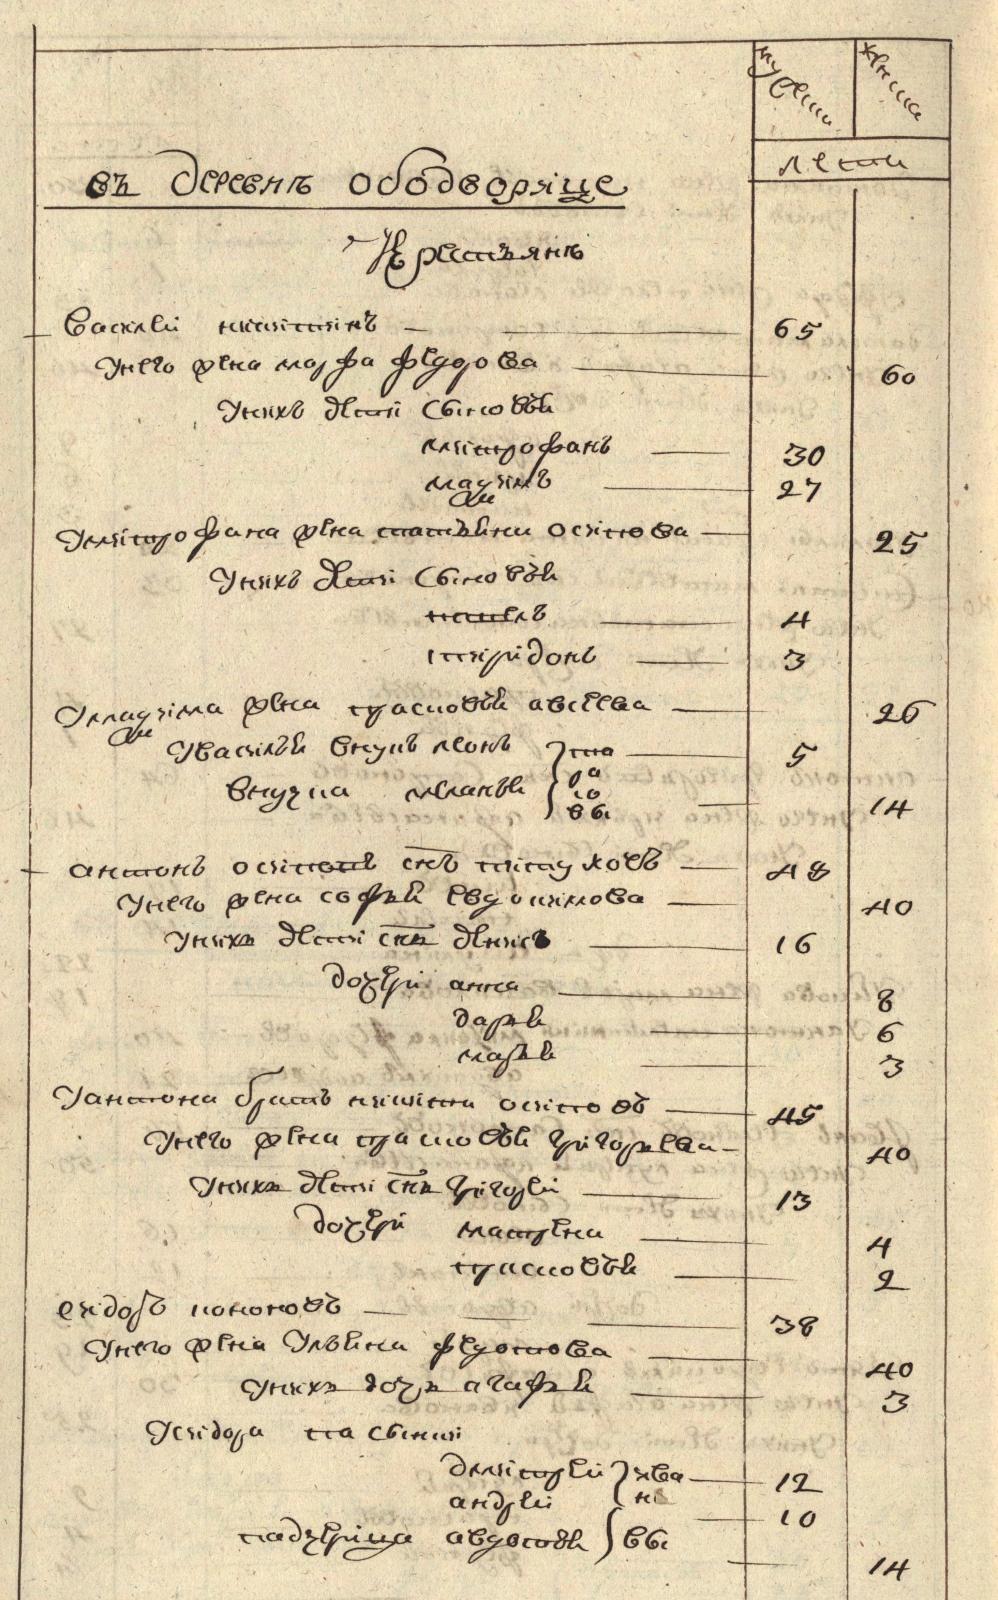 мужеска женска
лета
въ деревнѣ ободворище
Крестьянъ
василей никитинъ 65
Унего жена марфа федорова 60
Унихъ дети сыновья
митрофанъ 30
мадимъ 27
Умитрофана жена татьяна осипова 25
Унихъ дети сыновья
павелъ 4
спиридонъ 3
Умадима жена прасковья авсеева 26
Увасилья внукъ леонъ 5
внучка меланья 14
антонъ осиповъ снъ 48
Унего жена софья евдокимова 40
Унихъ дети снъ денисъ 16
дочери анна 8
дарья 6
марья 3
Уантона братъ никита осиповъ 45
Унего жена прасковья григорьева 40
Унихъ дети снъ григорей 13
дочери матрена 4
прасковья 2
сидоръ кононовъ 38
Унего жена ульяна федотова 40
Унихъ дочь агафья 3
Усидора пасынки
дмитрей ива 12
андрей 10
падчерица авдотья вы 14